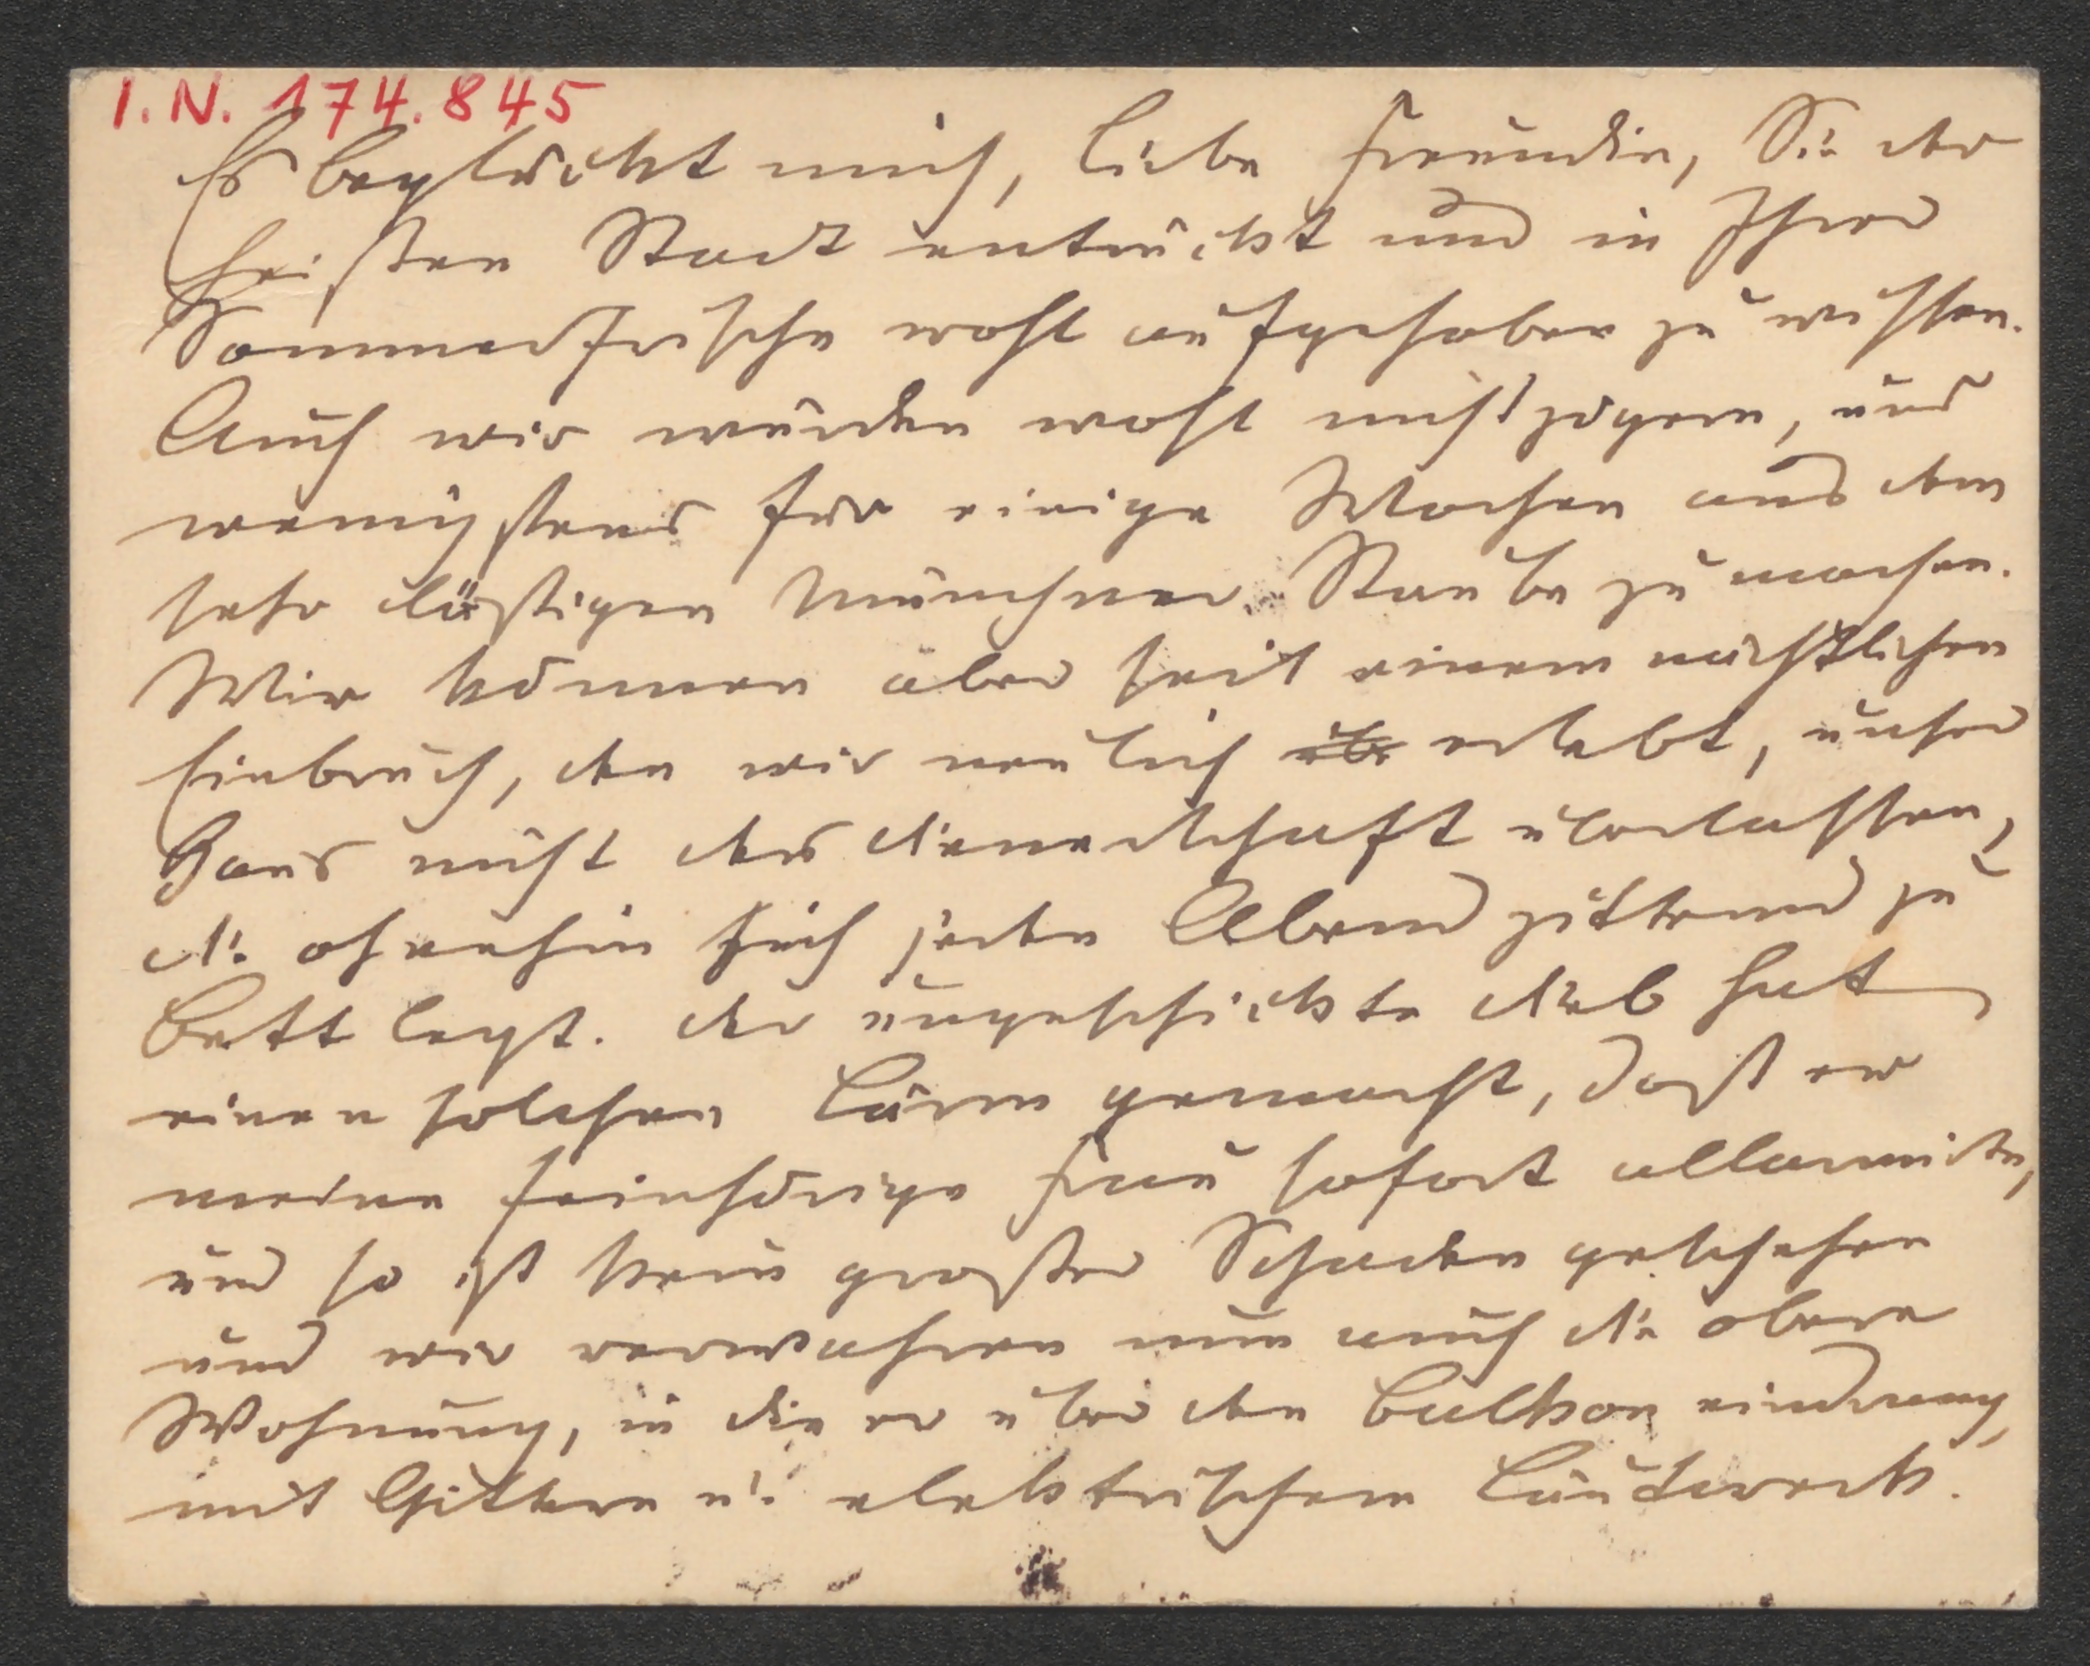 I.N. 174.845
Es beglückt mich, liebe Freundin, Sie der
heißen Stadt entrückt und in Ihrer
Sommerfrische wohl aufgehoben zu wissen.
Auch wir würden wohl nicht zögern, uns
wenigstens für einige Wochen aus dem
sehr lästigen Münchner Staube zu machen.
Wir können aber seit einem nächtlichen
Einbruch, den wir neulich erlebt, unser
Haus nicht der Dienerschaft überlassen,
die ohnehin sich jeden Abend zitternd zu
Bett legt. Der ungeschickte Dieb hat
einen solchen Lärm gemacht, daß er
meine feinhörige Frau sofort allarmirte,
und so ist kein großer Schaden geschehen
und wir verwahren nun auch die obere
Wohnung, in die er über den Balkon eindrang,
mit Gittern u. elektrischem Läutwerk.